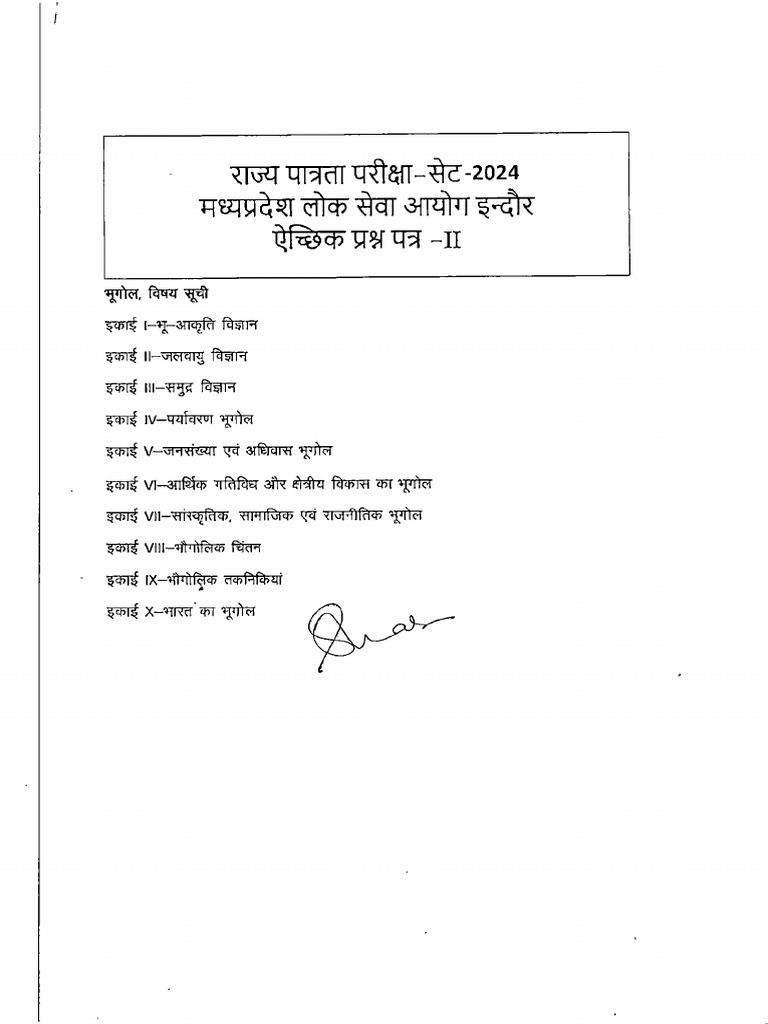 राज्य पात्रता परीक्षा–सेट-2024
मध्यप्रदेश लोक सेवा आयोग इन्दौर
ऐच्छिक प्रश्न पत्र –II
भूगोल, विषय सूची
इकाई I–भू–आकृति विज्ञान
इकाई II–जलवायु विज्ञान
इकाई III–समुद्र विज्ञान
इकाई IV–पर्यावरण भूगोल
इकाई V–जनसंख्या एवं अधिवास भूगोल
इकाई VI–आर्थिक गतिविध और क्षेत्रीय विकास का भूगोल
इकाई VII–सांस्कृतिक, सामाजिक एवं राजनीतिक भूगोल
इकाई VIII–भौगोलिक चिंतन
इकाई IX–भौगोलिक तकनिकियां
इकाई X–भारत का भूगोल